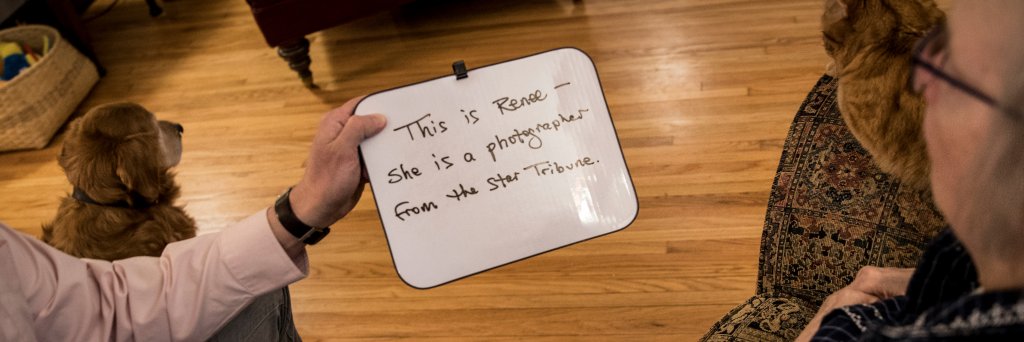 This is Renee —
She is a photographer
from the Star Tribune.